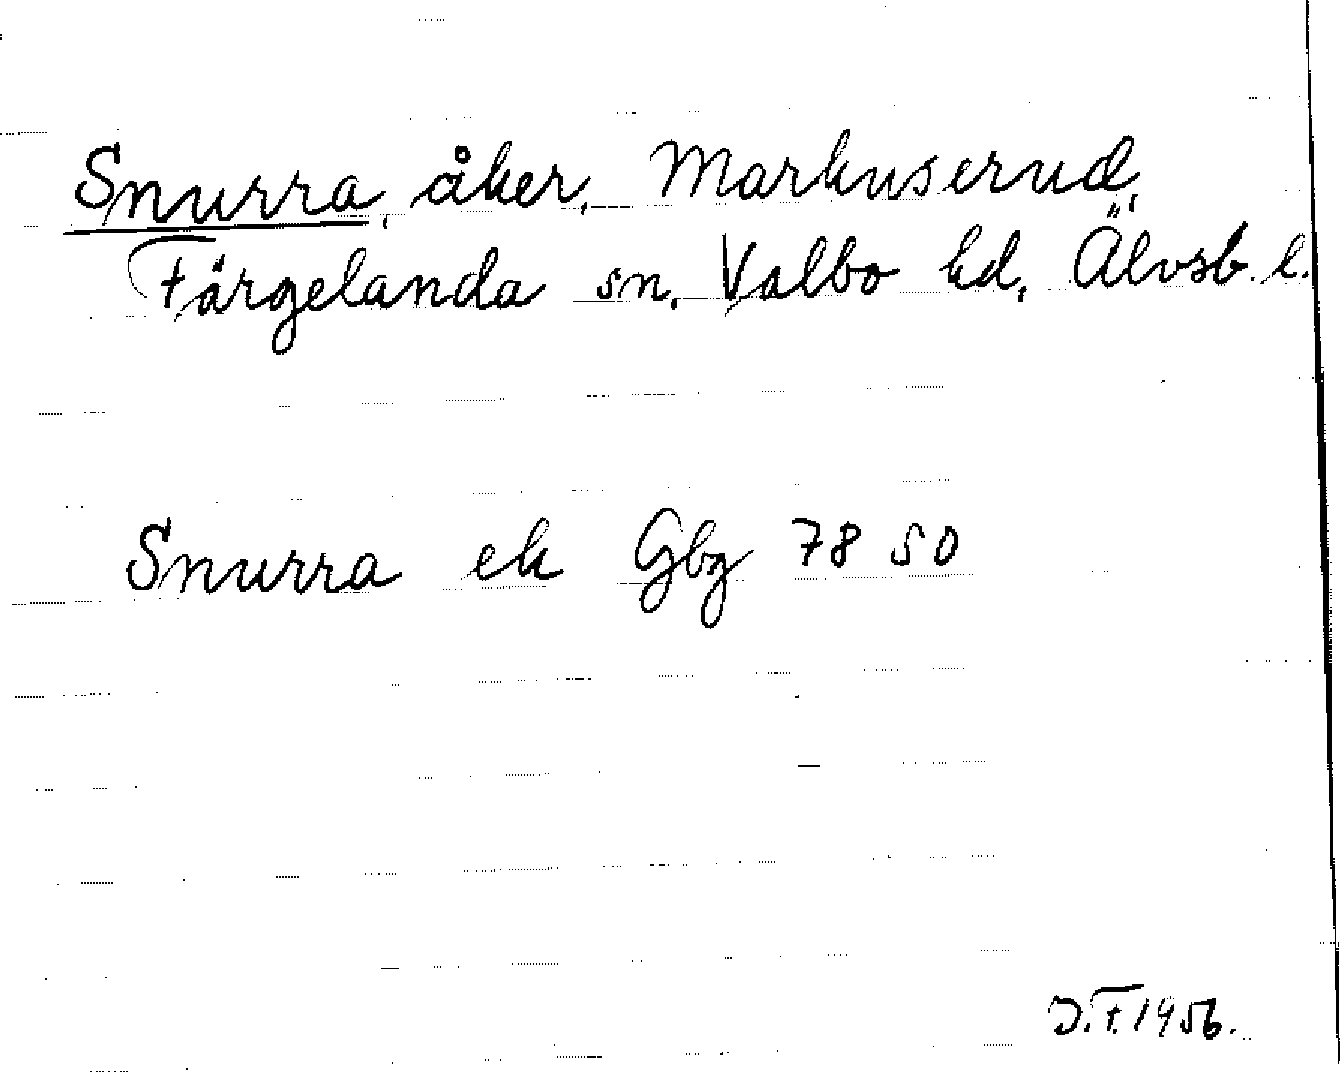 Snurra, åker, Markuserud,
Färgelanda sn, Valbo hd, Älvsb. l.
Snurra ek Gbg 78 50
J.F. 1956.